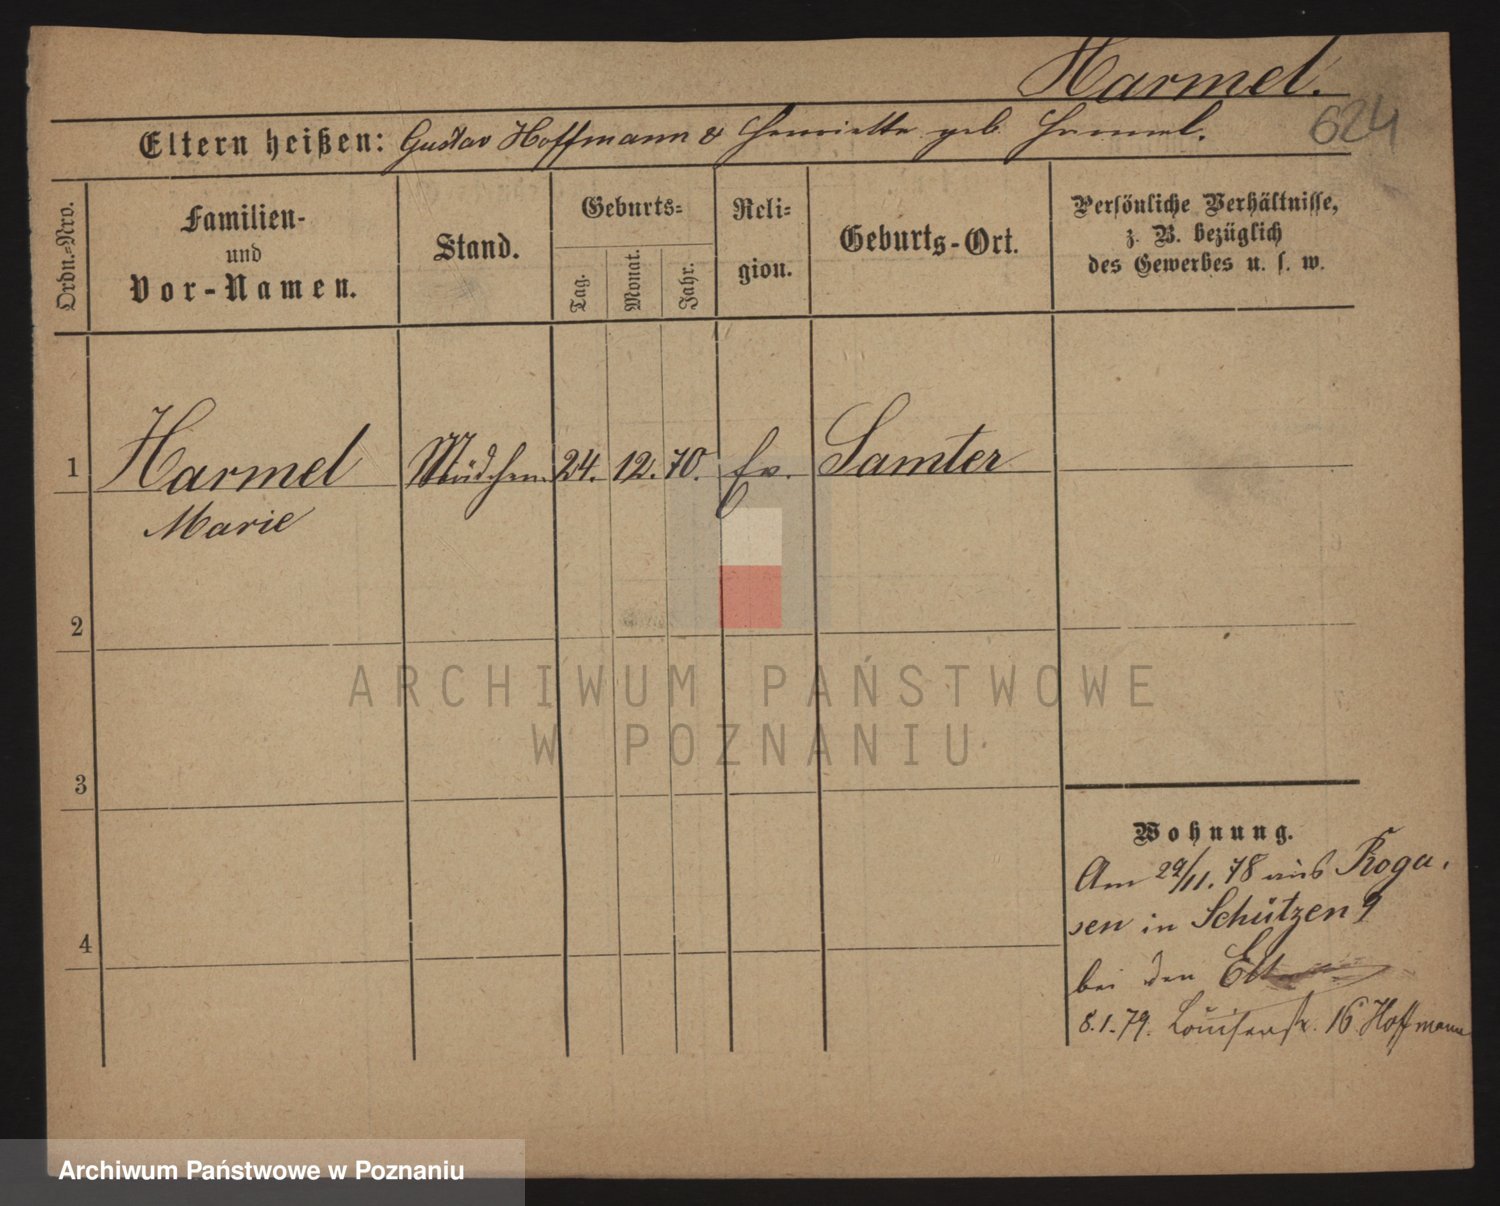 Harmel.
624
Eltern heißen: Gustav Hoffmann & Henriette geb. Harmel.
Ordn.-Nro.
Familien-
und
Vor-Namen.
Stand.
Geburts-
Tag.
Monat.
Jahr.
Reli-
gion.
Geburts-Ort.
Persönliche Verhältnisse,
z. B. bezüglich
des Gewerbes u. s. w.
1 Harmel Mädchen 24. 12. 70. Ev. Samter
Marie
2
3
4
Wohnung.
Am 29/11. 78 aus Roga-
sen in Schützen 9
bei den Elt
8.1.79. Louisenstr. 16 Hoffmann
ARCHIWUM PAŃSTWOWE
W POZNANIU
Archiwum Państwowe w Poznaniu